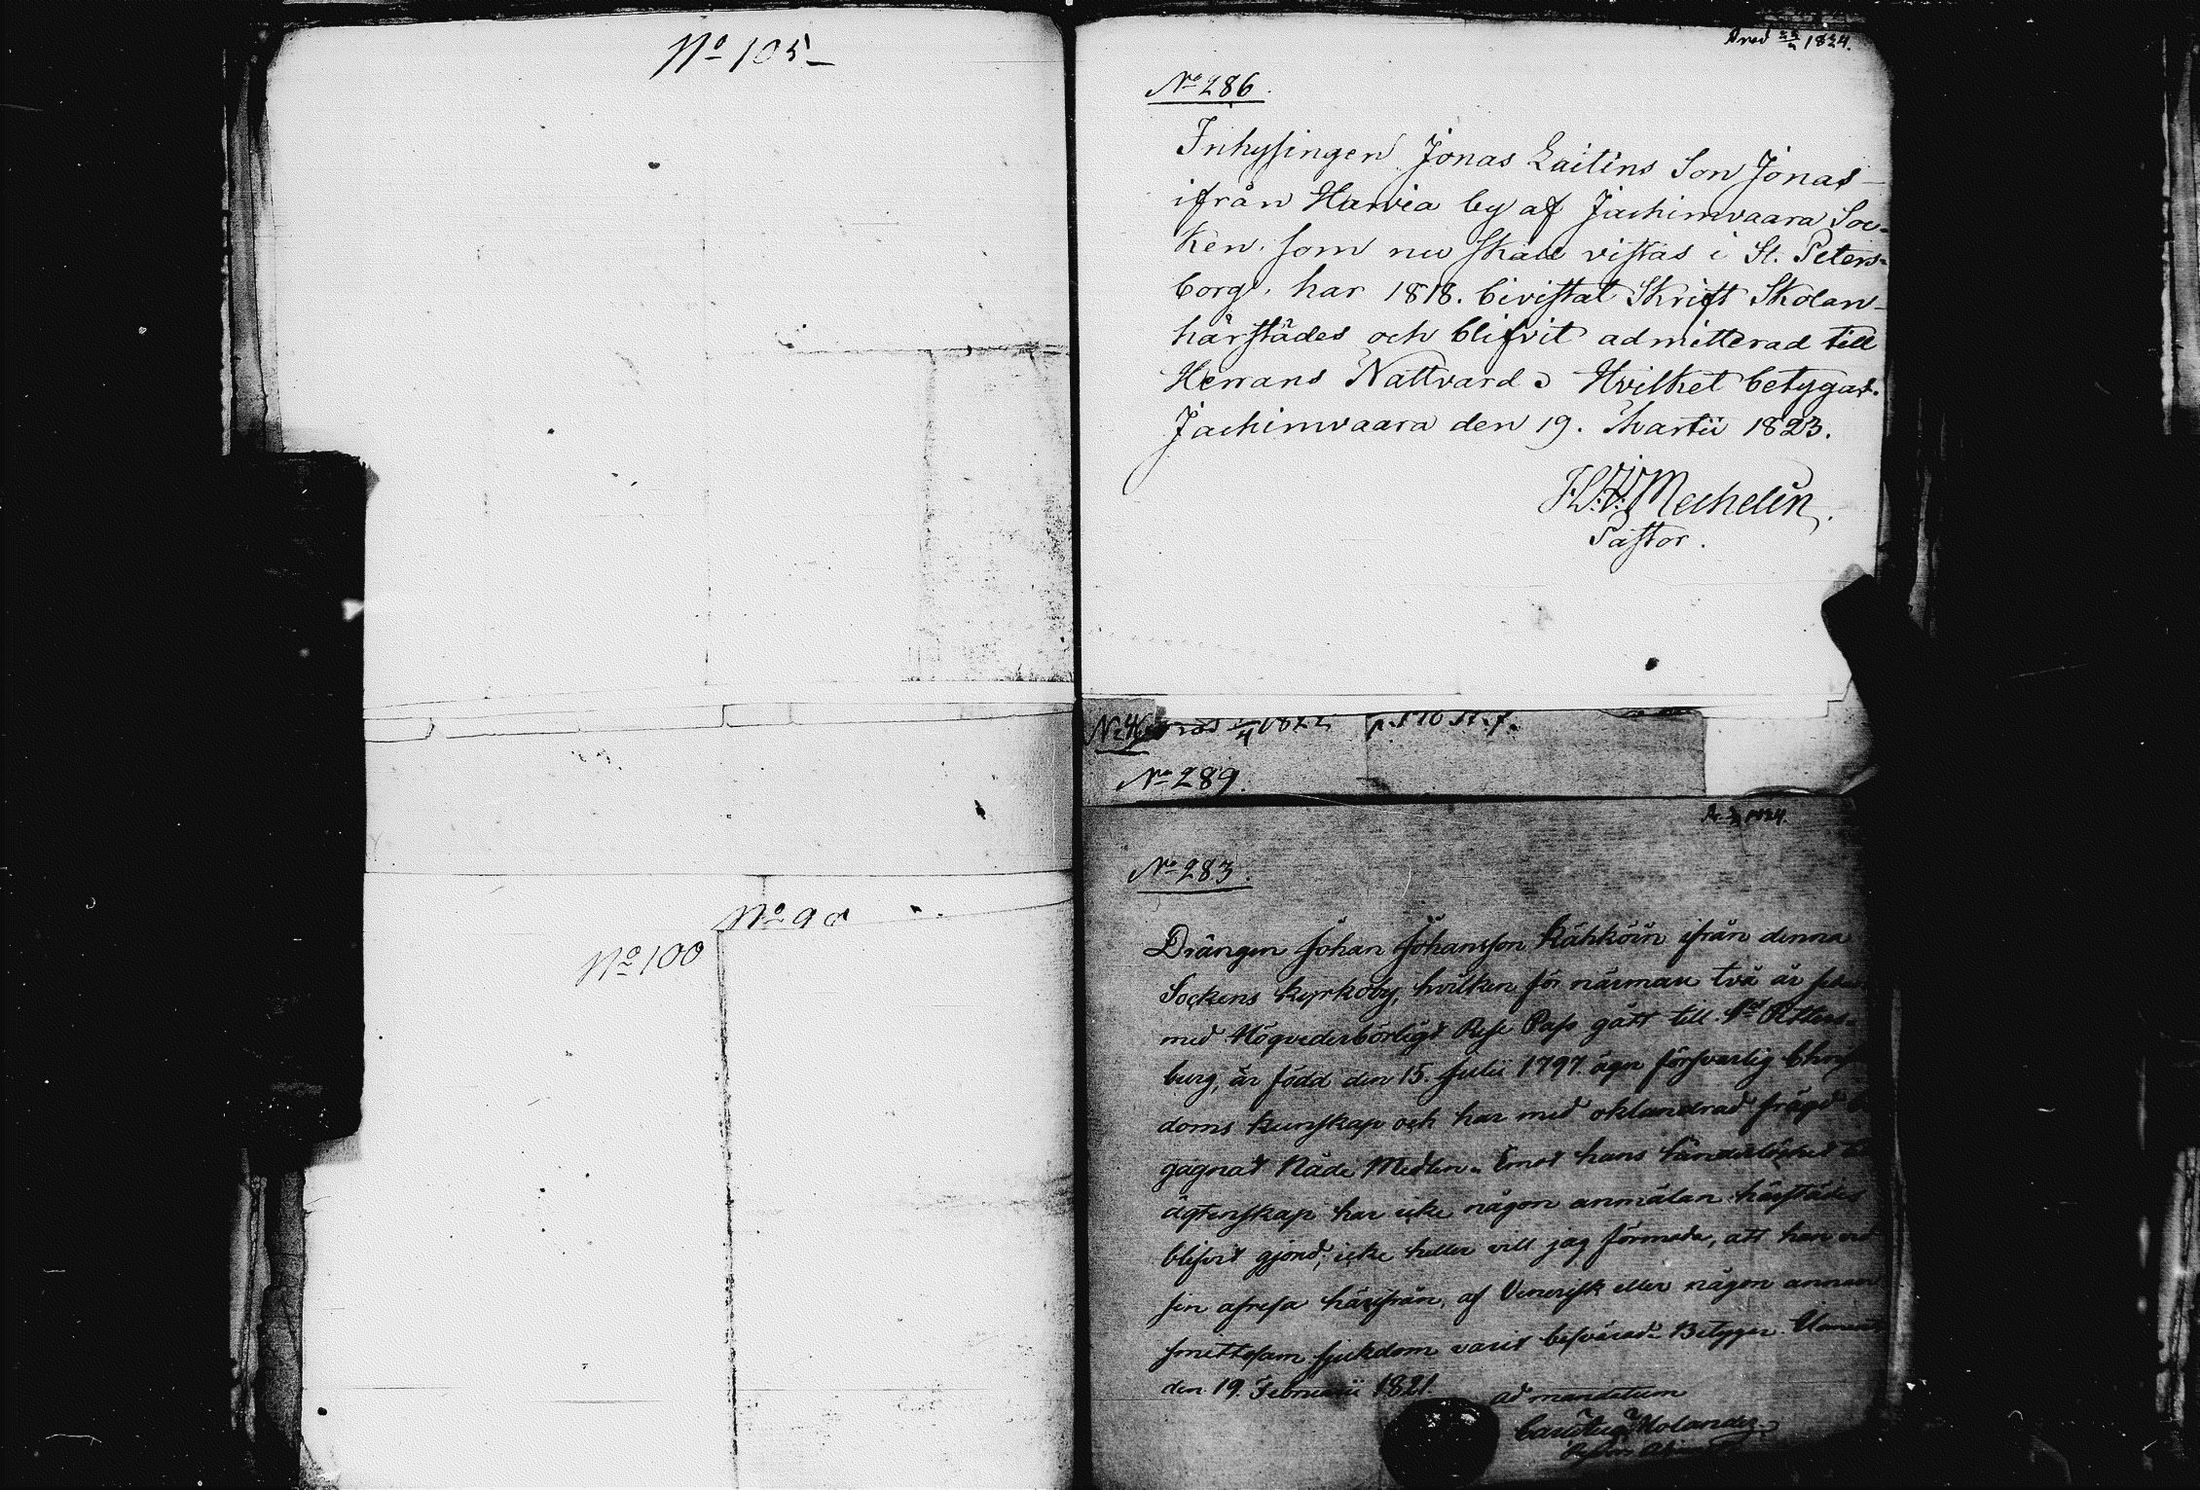 No 105
No 90
No 100
1824.
No 286.
Inhysingen Jonas Laitins Son Jonas
ifrån Harvia by af Jachimvaara Soc-
ken, som nu skall vistas i St. Peters-
borg, har 1818. bivistat Skrift Skolan
härstädes och blifvit admitterad till
Herrans Nattvard; Hvilket betygas.
Jachimvaara den 19. Martii 1823.
Mechelin.
Pastor.
1822
No 289.
1824.
No 283.
Drängen Johan Johansson Kähköin ifrån denna
Sockens kyrkoby, hvilken för närmare två år
med Högvederbörligt Rese Pass gått till St Petters-
burg, är född den 15. Julii 1797. äger försvarlig Chris
doms kunskap och har med oklanderad frägd
gagnat Nåde Medlen. Emot hans
ägtenskap har icke någon anmälan härstädes
blifvit gjord; icke heller vill jag förmoda, att han vid
sin afresa härifrån, af Venerisk eller någon annan
smittosam sjukdom varit besvärad. Betygar.
den 19. Februarii 1821.
ad mandatum
Molander